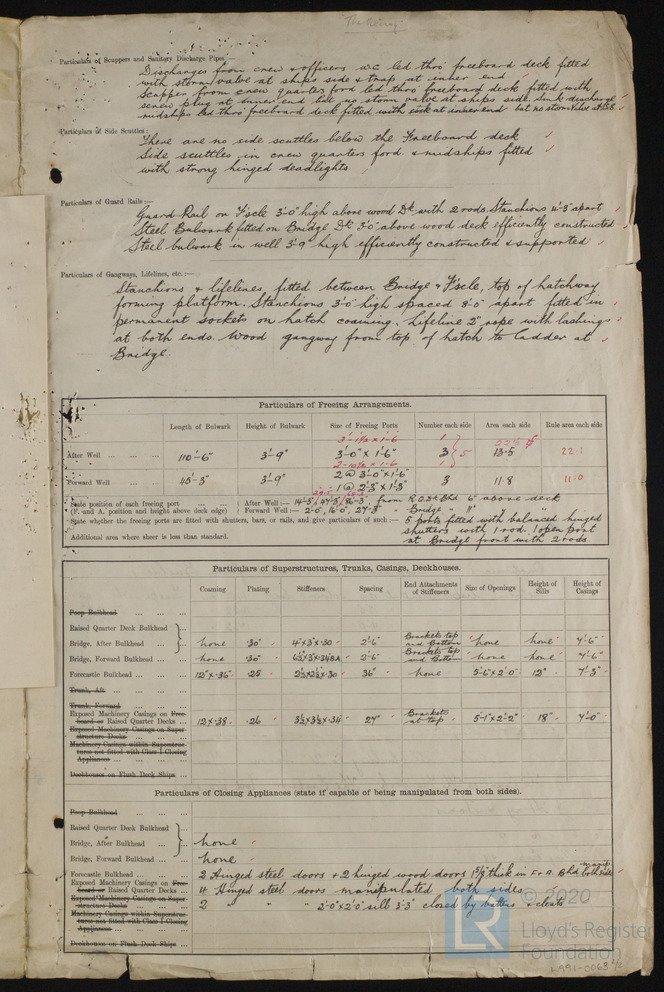 Particulars of Scuppers and Sanitary Discharge Pipes:—
Discharges from crew & officers W.C led thro freeboard deck fitted
with storm valve at ships side & trap at inner end
Scupper from crew quarters ford led thro freeboard deck fitted with
screw plug at inner end but no storm valve at ships side. Sink discharge
midships led thro freeboard deck fitted with cock at inner end but no storm valve at S.S.
Particulars of Side Scuttles:
There are no side scuttles below the Freeboard deck
Side scuttles in crew quarters ford & midships fitted
with strong hinged deadlights.
Particulars of Guard Rails:—
Guard Rail on F'scle 3'-0" high above wood Dk with 2 rods. Stanchions 4'-3" apart
Steel Bulwark fitted on Bridge Dk 3'-0" above wood deck efficiently constructed
Steel bulwark in well 3'-9" high efficiently constructed & supported
Particulars of Gangways, Lifelines, etc.:—
Stanchions & lifelines, fitted between Bridge & F'scle, top of hatchway
forming platform. Stanchions 3'-0" high spaced 8'-0" apart fitted in
permanent sockets on hatch coaming. Lifeline 2" rope with lashings
at both ends. Wood gangway from top of hatch to ladder at
Bridge.
Particulars of Freeing Arrangements.
Length of Bulwark Height of Bulwark Size of Freeing Ports Number each side Area each side Rule area each side
After Well 110'-6" 3'-9" 3'-0" x 1'-6" 3 5 13·5 22·1
Forward Well 3'-9" 2 @ 3'-0" x 1'-6" 3 11·8 11·0
1 @ 2'-3" x 1'-3"
State position of each freeing port After Well:— from R.Q.D. Bhd 6" above deck
(F. and A. position and height above deck edge) Forward Well:— 2'-0", 16'-0", 27'-3" " Bridge " 11" "
State whether the freeing ports are fitted with shutters, bars, or rails, and give particulars of such:— 5 ports fitted with balanced hinged
shutters with 1 rod. 1 open port
Additional area where sheer is less than standard. at Bridge front with 2 rods.
Particulars of Superstructures, Trunks, Casings, Deckhouses.
Coaming Plating Stiffeners Spacing End Attachments of Stiffeners Size of Openings Height of Sills Height of Casings
Poop Bulkhead
Raised Quarter Deck Bulkhead
Bridge, After Bulkhead none ·30" 4" x 3" x ·30 2'-6" Brackets top and Bottom none none 7'-6"
Bridge, Forward Bulkhead none ·30" 2'-6" Brackets top and Bottom none none 7'-6"
Forecastle Bulkhead 12" x ·36 ·25 2½ x 2½ x ·30 36" none 3'-6 x 2'-0" 12" 7'-3"
Trunk, Aft
Trunk, Forward
Exposed Machinery Casings on Freeboard or Raised Quarter Decks 12 x ·38 ·26 3½ x 3½ x ·34 27" Brackets at top 5'-1" x 2'-2" 18" 7'-0"
Exposed Machinery Casings on Superstructure Decks
Machinery Casings within Superstructures not fitted with Class 1 Closing Appliances
Deckhouses on Flush Deck Ships
Particulars of Closing Appliances (state if capable of being manipulated from both sides).
Poop Bulkhead
Raised Quarter Deck Bulkhead
Bridge, After Bulkhead none
Bridge, Forward Bulkhead none
Forecastle Bulkhead 2 Hinged steel doors & 2 hinged wood doors 1⅝" thick in F. & A. Bhd both sides
Exposed Machinery Casings on Freeboard or Raised Quarter Decks 4 Hinged steel doors manipulated both sides
Exposed Machinery Casings on Superstructure Decks 2 " " 2'-0" x 2'-0" sill 3'-3" closed by battens & cleats
Machinery Casings within Superstructures not fitted with Class 1 Closing Appliances
Deckhouses on Flush Deck Ships
LR
© 2020
Lloyd's Register
Foundation